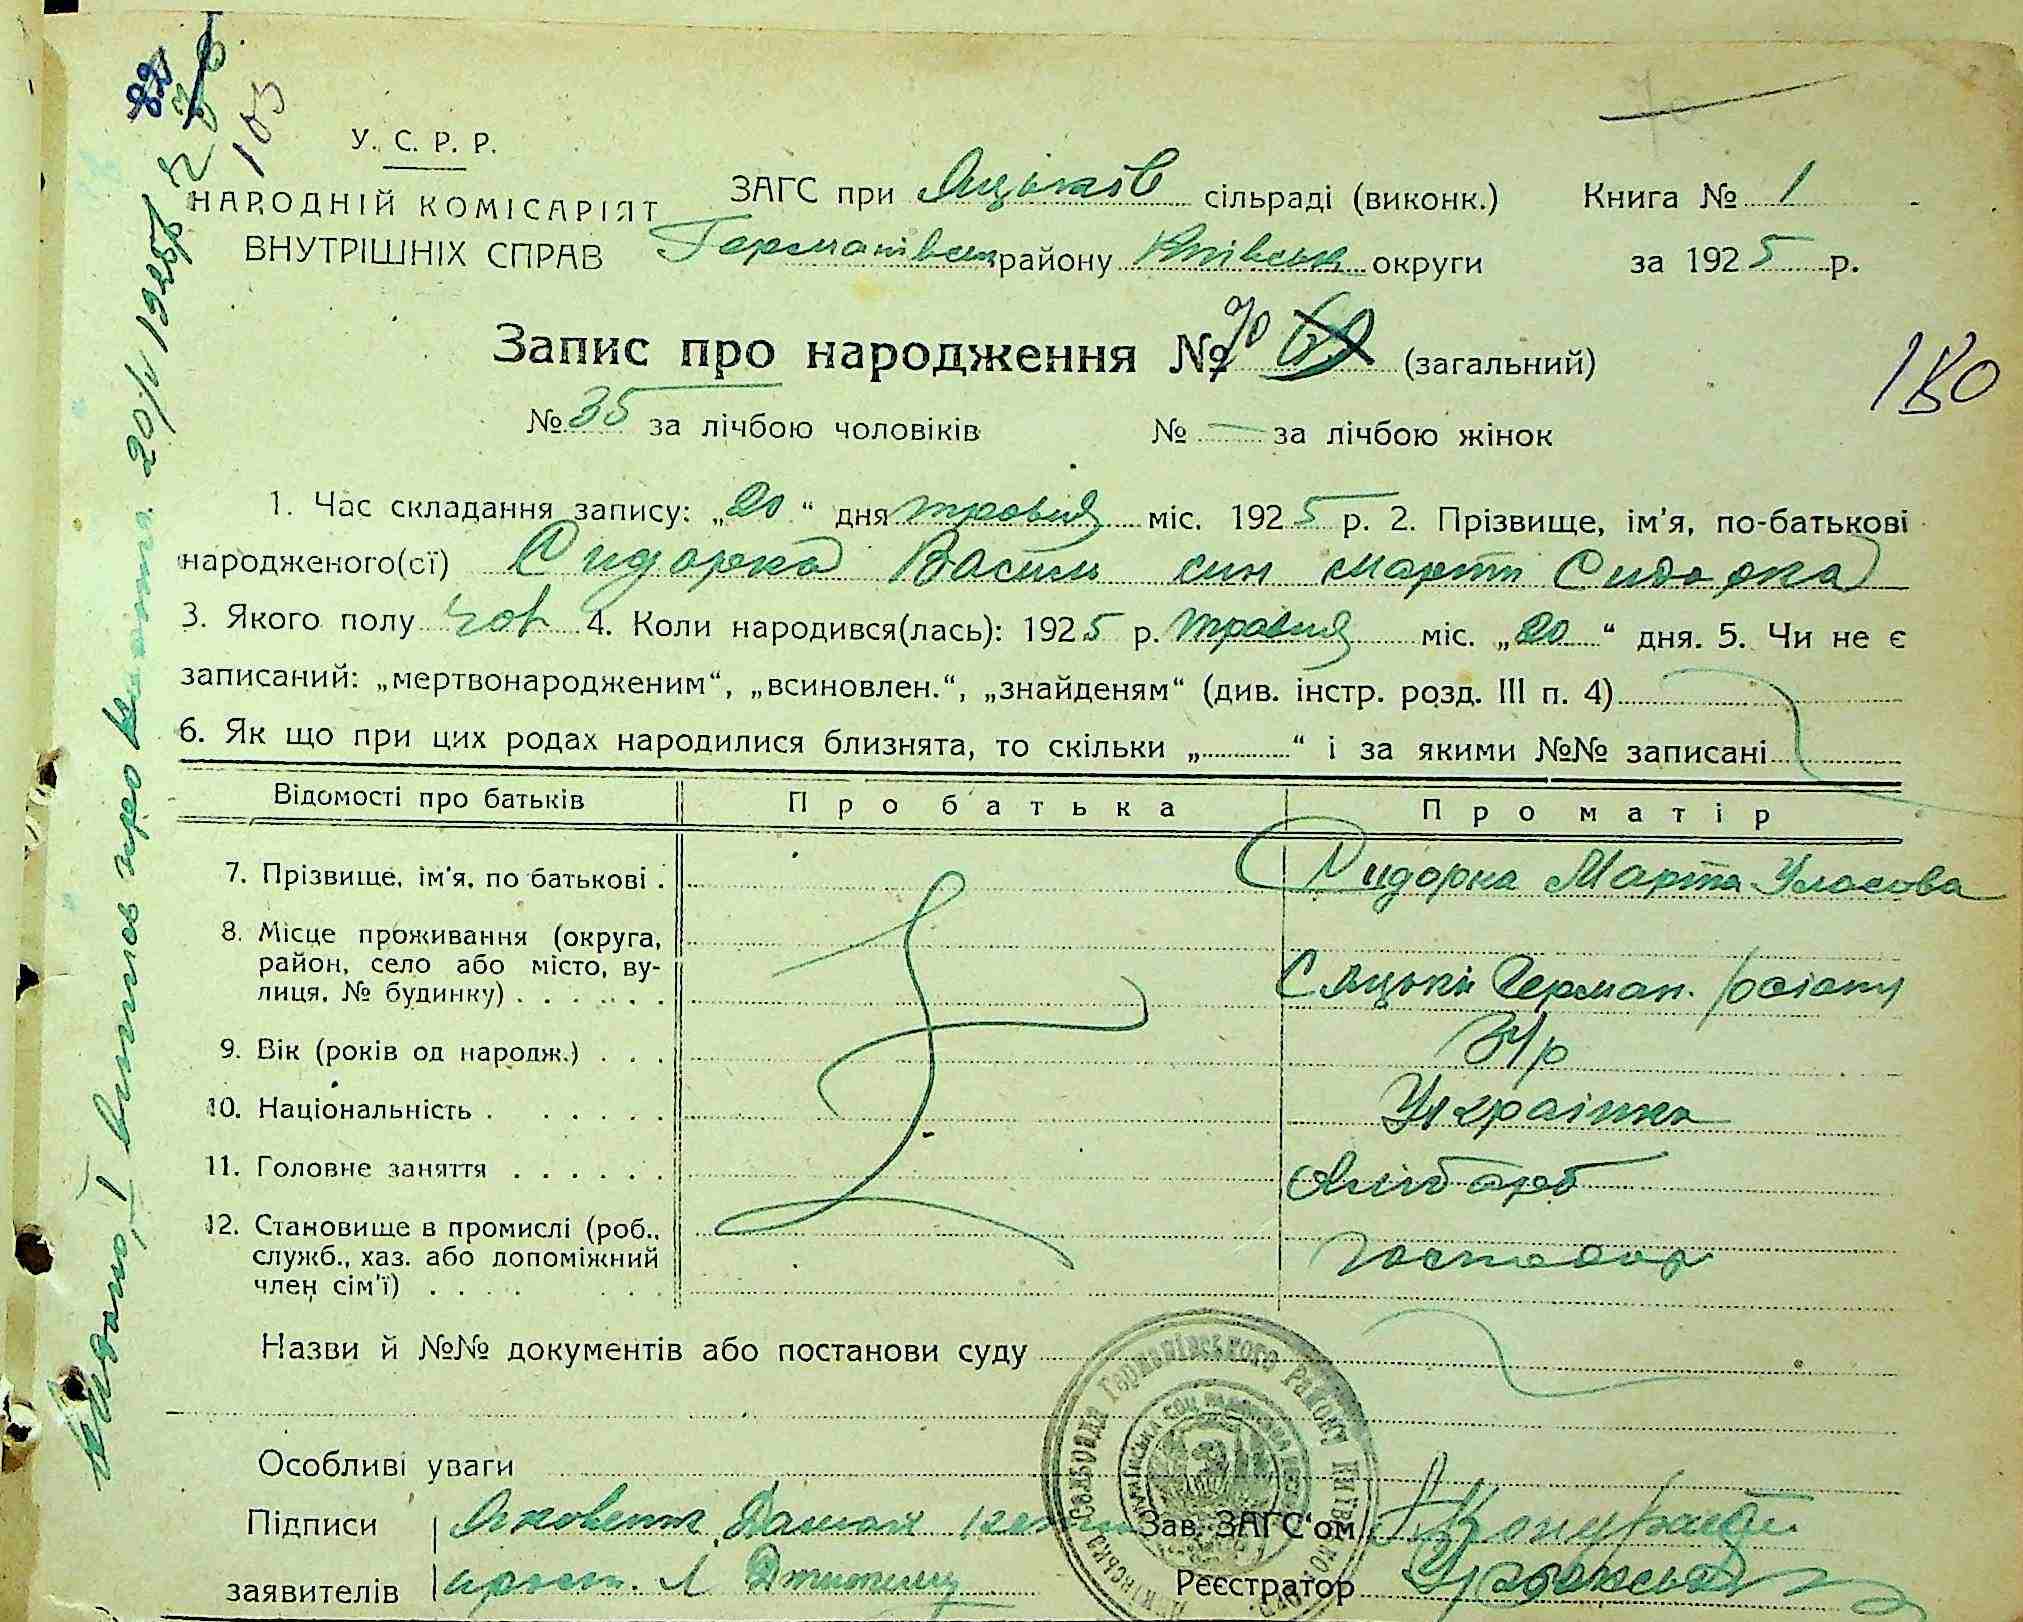 226
103
У. С. Р. Р.
НАРОДНІЙ КОМІСАРІЯТ
ВНУТРІШНІХ СПРАВ
ЗАГС при Яцьків сільраді (виконк.) Книга № 1
Германівськ району Київськ округи за 1925 р.
Запис про народження № 70 69 (загальний)
180
№ 35 за лічбою чоловіків № — за лічбою жінок
1. Час складання запису: „20“ дня травня міс. 1925 р. 2. Прізвище, ім'я, по-батькові
народженого(сї) Сидорка Василь син Марти Сидорка
3. Якого полу чол 4. Коли народився(лась): 1925 р. травня міс. „20“ дня. 5. Чи не є
записаний: „мертвонародженим“, „всиновлен.“, „знайденям“ (див. інстр. розд. III п. 4)
6. Як що при цих родах народилися близнята, то скільки „ “ і за якими №№ записані
Відомості про батьків Про батька Про матір
7. Прізвище, ім'я, по батькові . Сидорка Марта Уласова
8. Місце проживання (округа,
район, село або місто, ву-
лиця, № будинку) . . . . . . С Яцьки Герман. району
9. Вік (років од народж.) . . . 34 р
10. Національність . . . . . . Українка
11. Головне заняття . . . . . . хлібороб
12. Становище в промислі (роб.,
служб., хаз. або допоміжний
член сім'ї) . . . . господар
Назви й №№ документів або постанови суду
Особливі уваги
Підписи Яковенко Даман Зав. ЗАГС'ом
заявителів Реєстратор
Видано 1 виписьв про 20/V 1925р